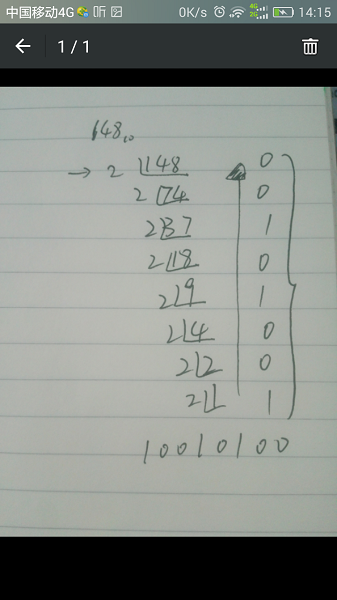 中国移动4G 听 0K/s 4G 2G 14:15
1/1
148₁₀
→ 2 148 0
2 74 0
2 37 1
2 18 0
2 9 1
2 4 0
2 2 0
2 1 1
10010100